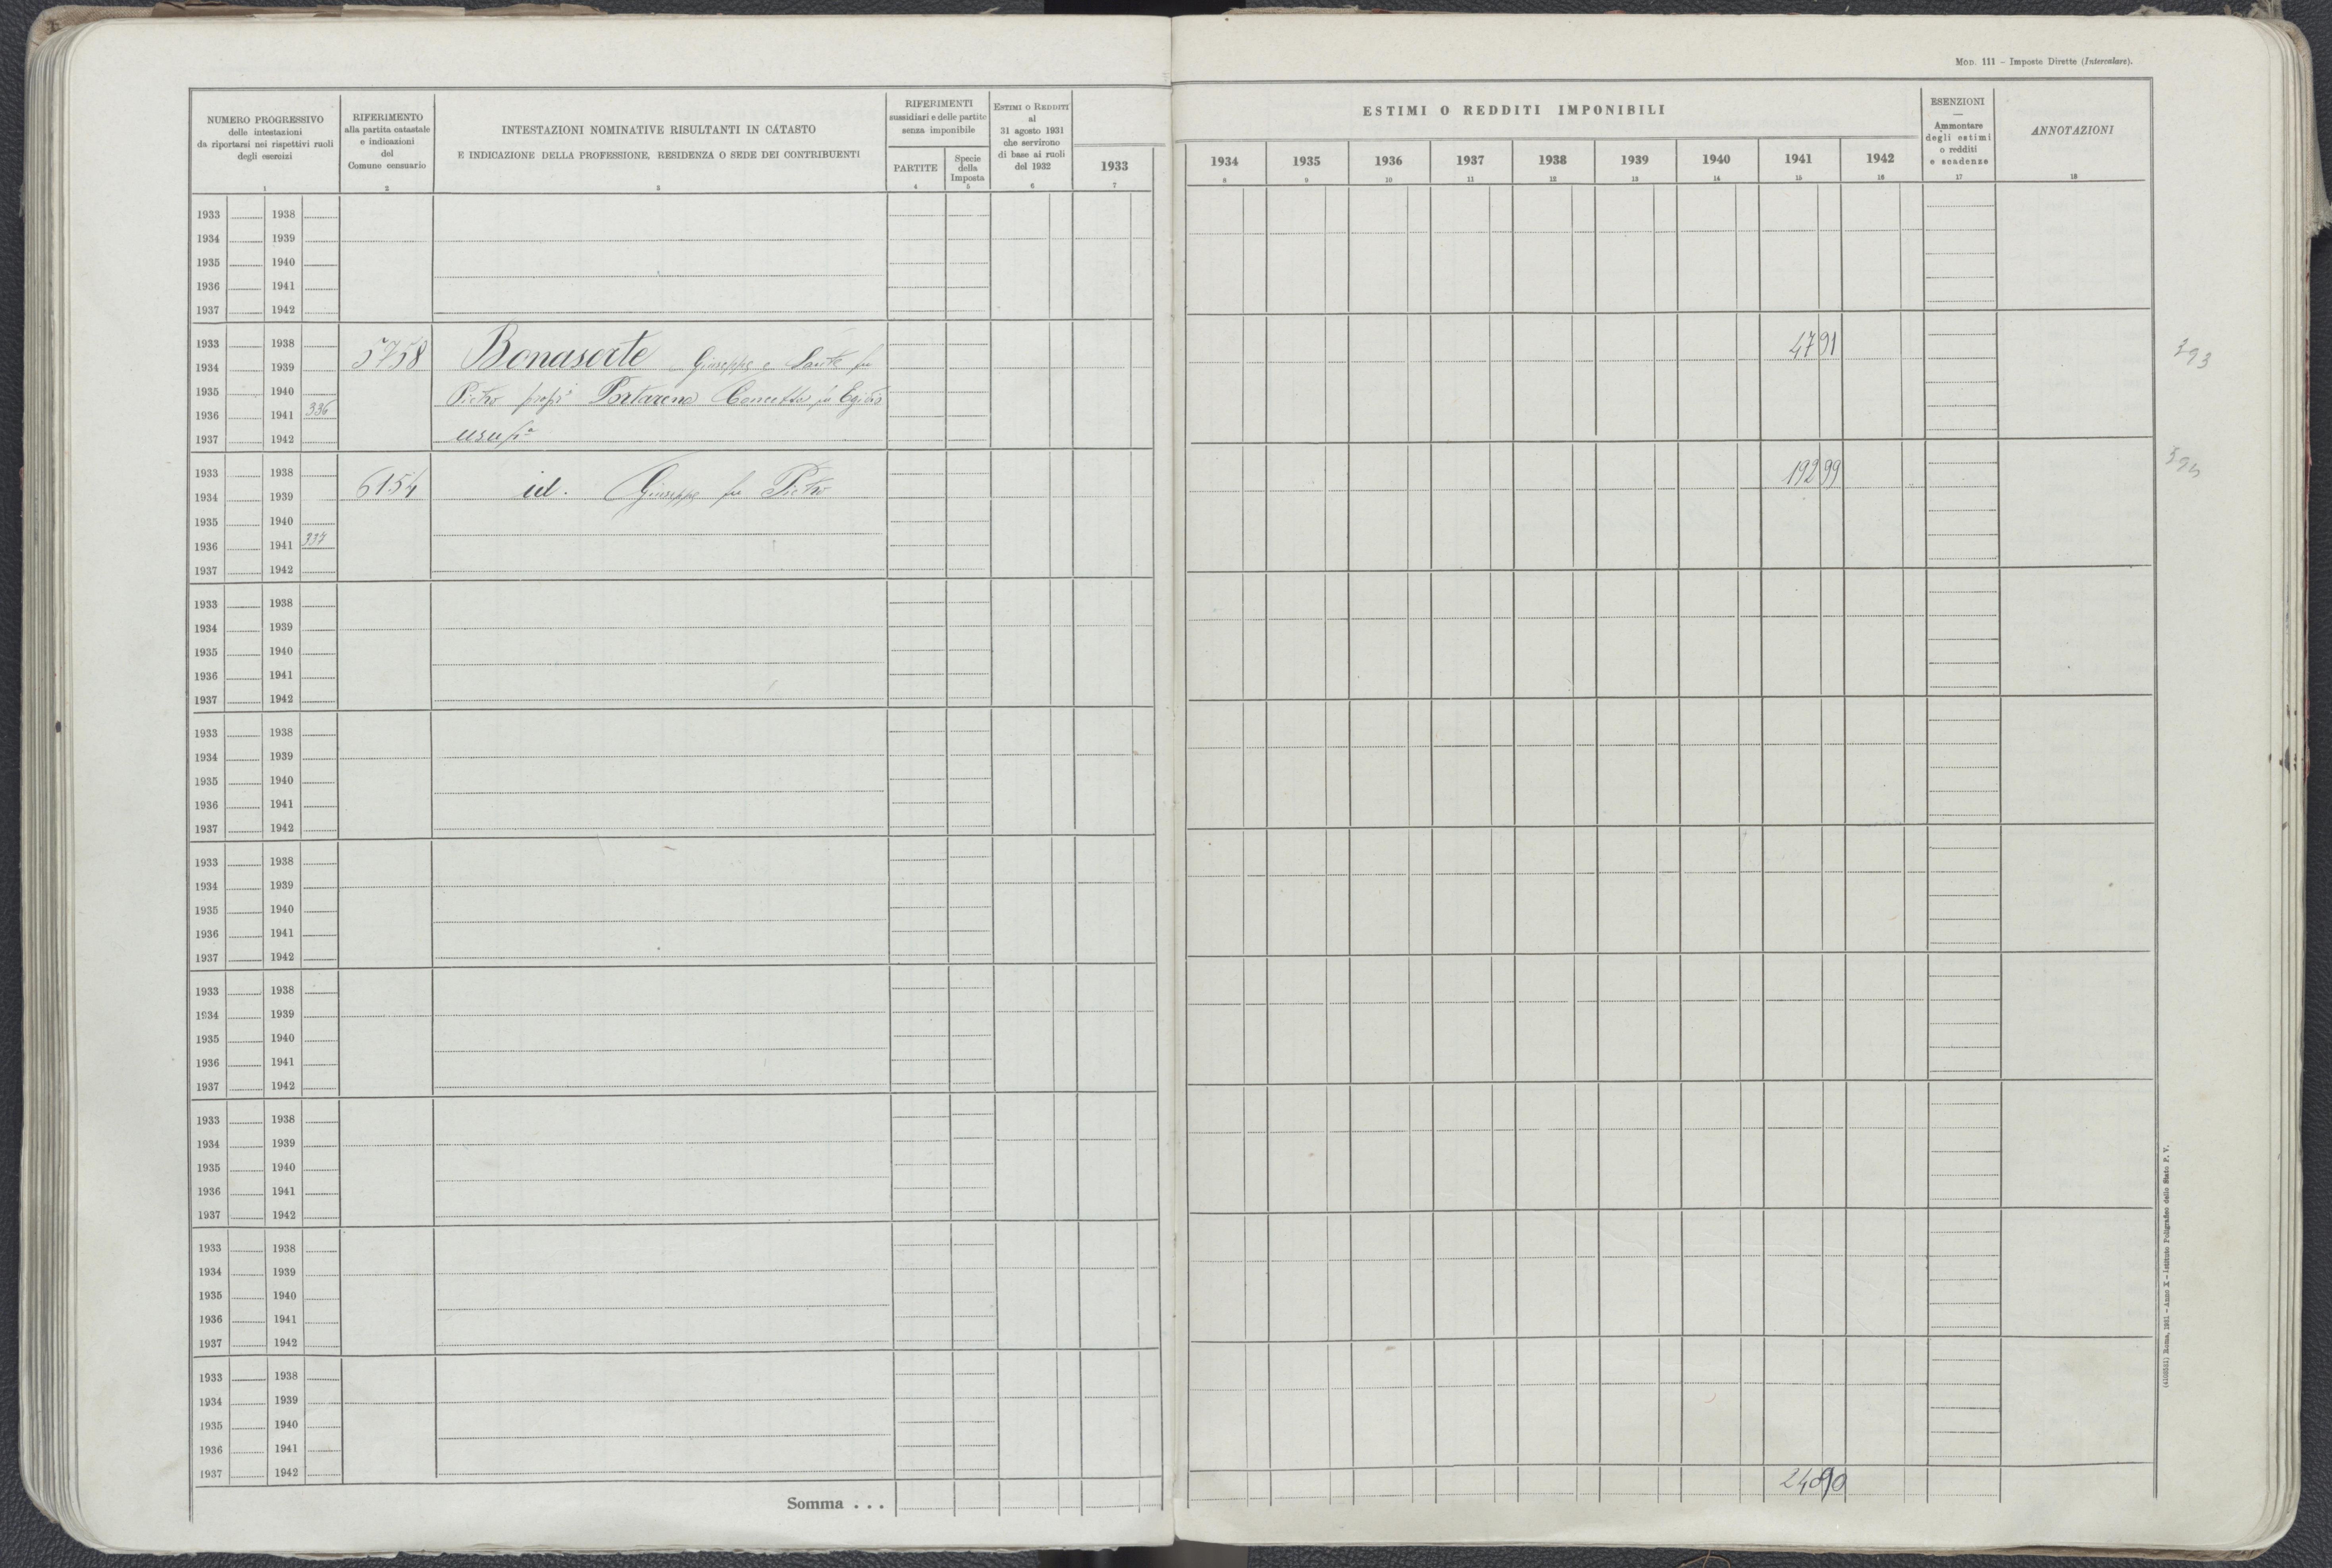 MOD. 111 – Imposte Dirette (Intercalare).
NUMERO PROGRESSIVO
delle intestazioni
da riportarsi nei rispettivi ruoli
degli esercizi
1
RIFERIMENTO
alla partita catastale
e indicazioni
del
Comune censuario
2
INTESTAZIONI NOMINATIVE RISULTANTI IN CATASTO
E INDICAZIONE DELLA PROFESSIONE, RESIDENZA O SEDE DEI CONTRIBUENTI
3
RIFERIMENTI
sussidiari e delle partite
senza imponibile
PARTITE
4
Specie
della
Imposta
5
ESTIMI O REDDITI
al
31 agosto 1931
che servirono
di base ai ruoli
del 1932
6
1933
7
ESTIMI O REDDITI IMPONIBILI
1934 1935 1936 1937 1938 1939 1940 1941 1942
8 9 10 11 12 13 14 15 16
ESENZIONI
—
Ammontare
degli estimi
o redditi
e scadenze
17
ANNOTAZIONI
18
1933 1938
1934 1939
1935 1940
1936 1941
1937 1942
1933 1938
5758 Bonasorte Giuseppe e Sante fu 47 91
1934 1939
1935 1940
Pietro propri Portarena Concetta fu Egidio
1936 1941 336
1937 1942
usufª
1933 1938
6154 id. Giuseppe fu Pietro 192 99
1934 1939
1935 1940
1936 1941 337
1937 1942
1933 1938
1934 1939
1935 1940
1936 1941
1937 1942
1933 1938
1934 1939
1935 1940
1936 1941
1937 1942
1933 1938
1934 1939
1935 1940
1936 1941
1937 1942
1933 1938
1934 1939
1935 1940
1936 1941
1937 1942
1933 1938
1934 1939
1935 1940
1936 1941
1937 1942
1933 1938
1934 1939
1935 1940
1936 1941
1937 1942
1933 1938
1934 1939
1935 1940
1936 1941
1937 1942
Somma . . . 240 90
Roma, 1931 – Anno X – Istituto Poligrafico dello Stato P. V.